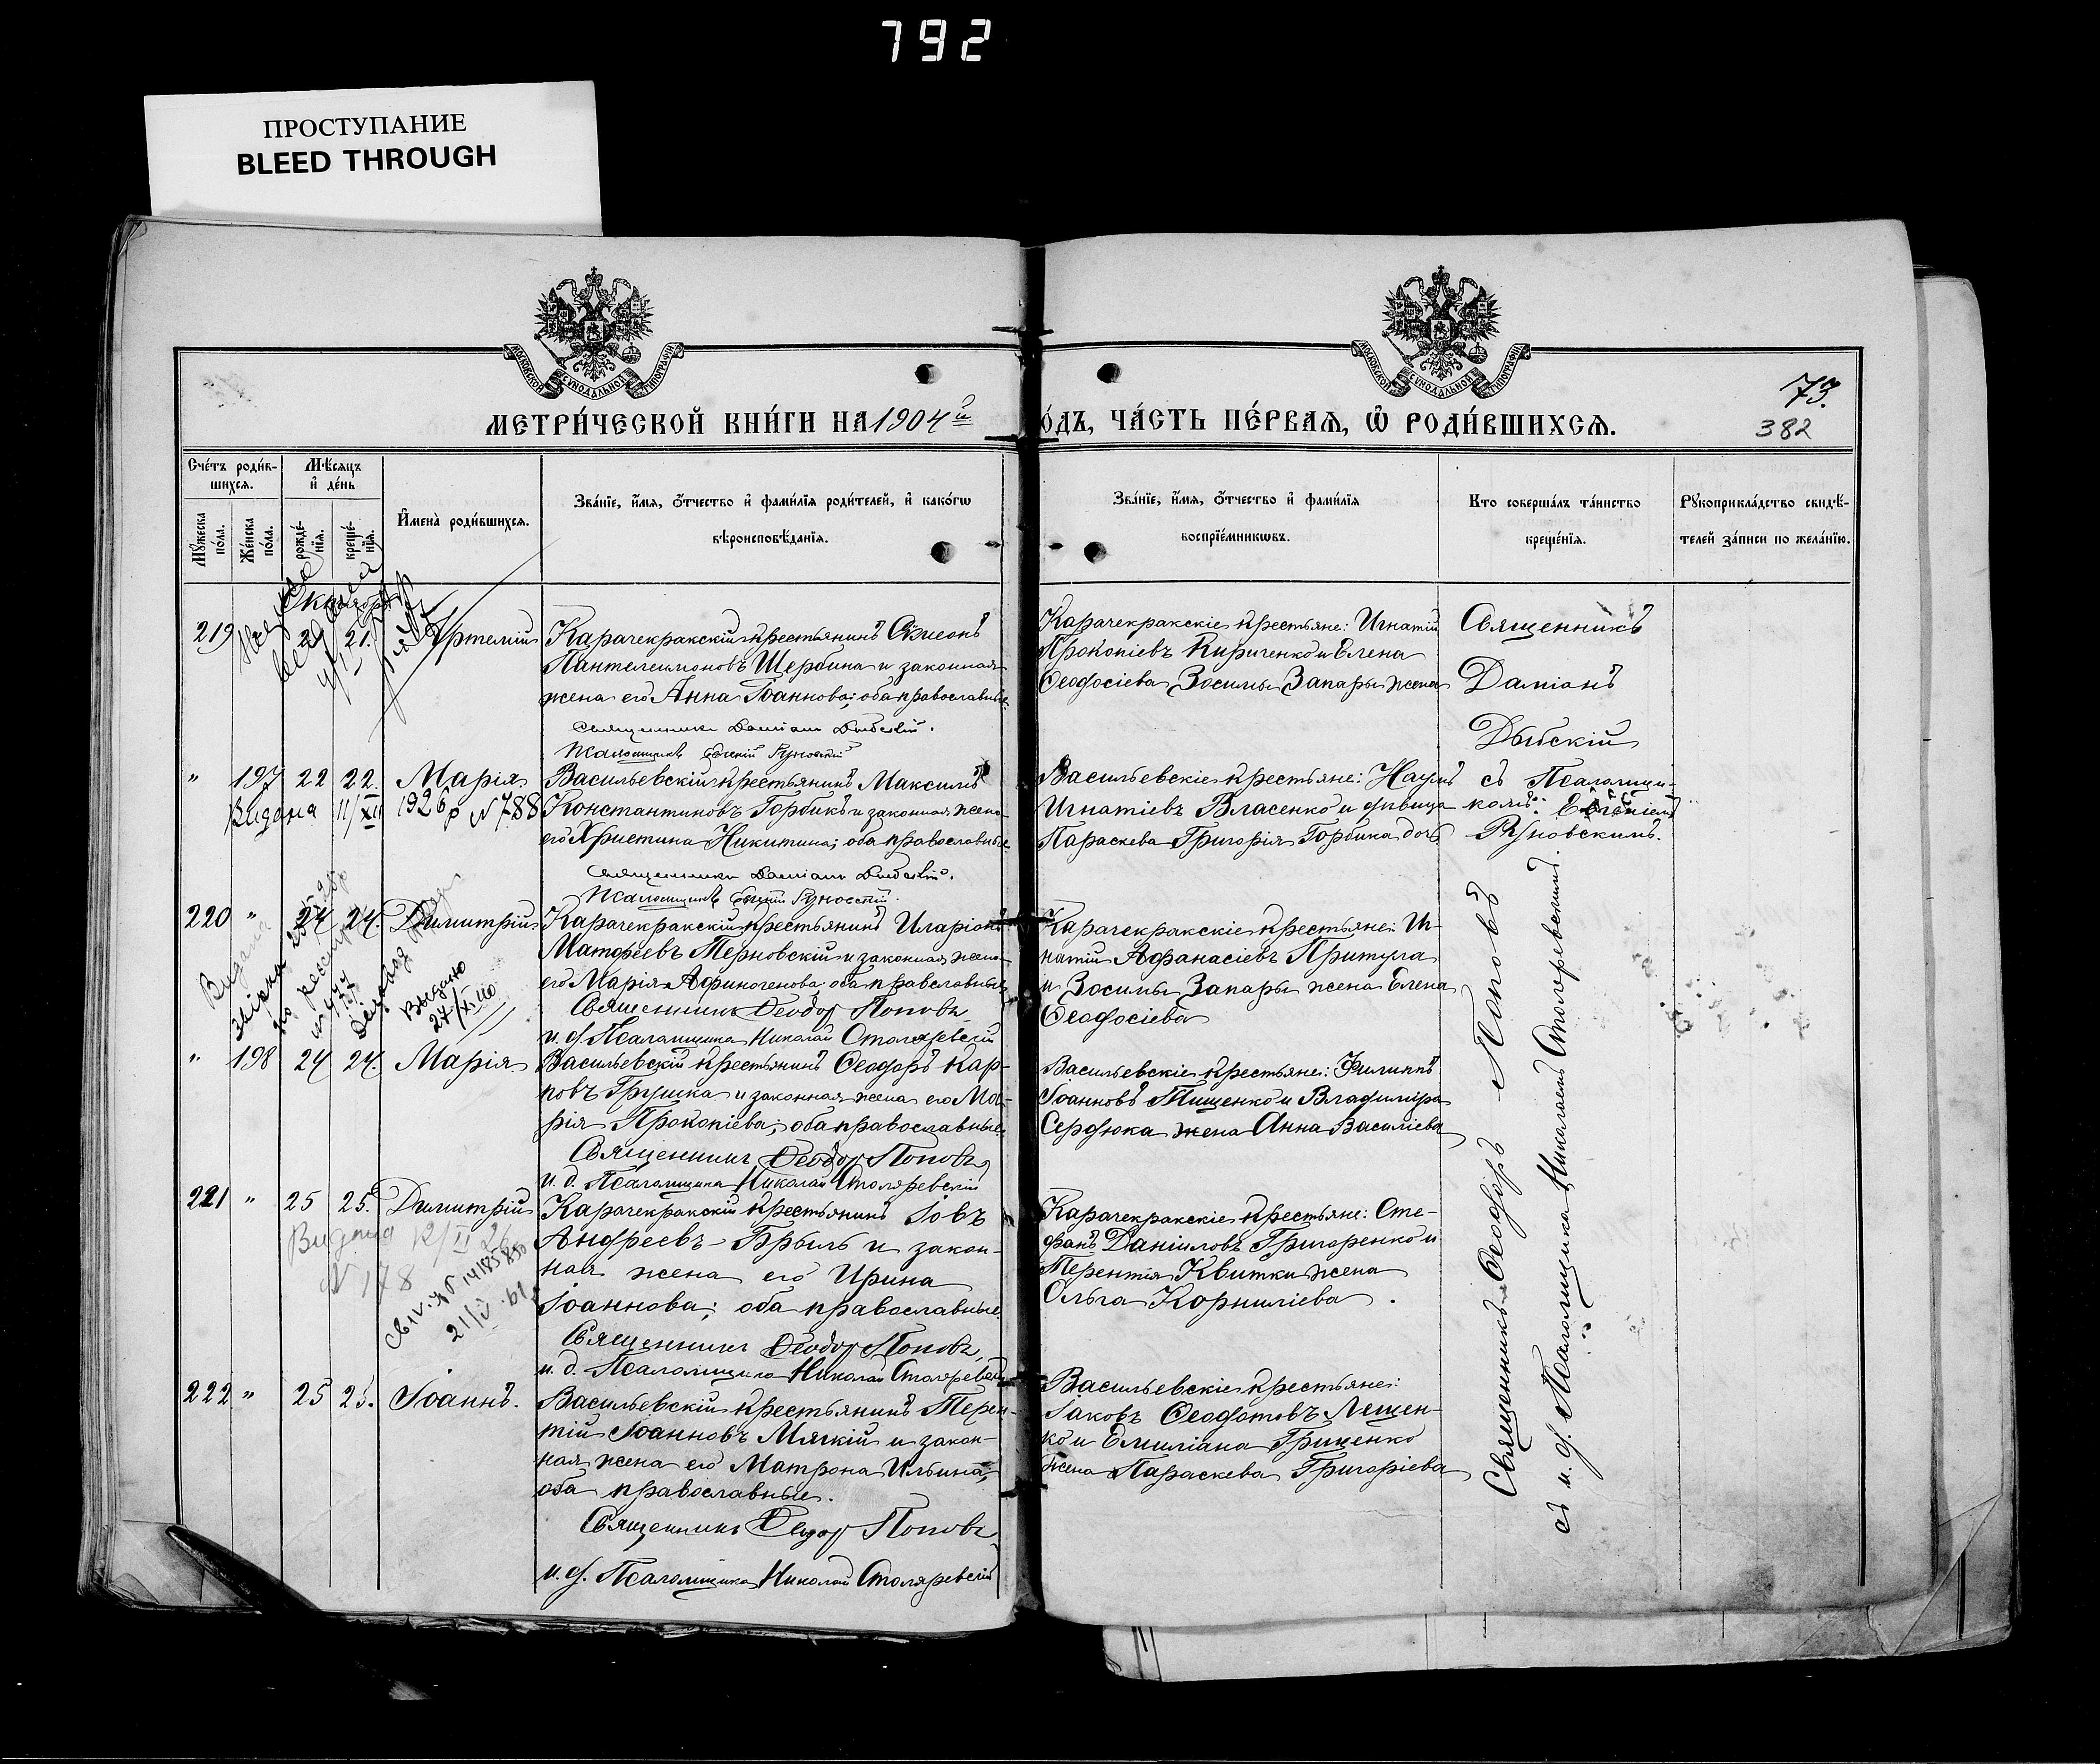 792
ПРОСТУПАНИЕ
BLEED THROUGH
МОСКОВСКОЙ СѴНОДАЛЬНОЙ ТИПОГРАФІИ
МОСКОВСКОЙ СѴНОДАЛЬНОЙ ТИПОГРАФІИ
73.
382
МЕТРИ́ЧЕСКОЙ КНИ́ГИ НА 1904й
ОДЪ, ЧА́СТЬ ПЕ́РВАѦ, Ѡ҆ РОДИ́ВШИХСѦ.
Сче́тъ роди́в-
шихсѧ.
Мꙋжеска по́ла.
Же́нска по́ла.
Мѣ́сѧцъ
и҆ де́нь
рожде́-
нїѧ.
креще́-
нїѧ.
И҆мена̀ роди́вшихсѧ.
Зва́нїе, и҆́мѧ, ѻ҆́тчество и҆ фами́лїѧ роди́телей, и҆ како́гѡ
вѣроисповѣ́данїѧ.
Зва́нїе, и҆́мѧ, ѻ҆́тчество и҆ фами́лїѧ
воспрїе́мникѡвъ.
Кто соверша́лъ та́инство
креще́нїѧ.
Рꙋкоприкла́дство свидѣ́-
телей за́писи по жела́нїю.
219
21.
Артемій
Карачекракскій крестьянинъ Сѵмеонъ
Пантелеимоновъ Щербина и законная
жена его Анна Іоаннова; оба православные.
Священникъ Даміанъ Дыбскій.
Псаломщикъ Евгеній Руновскій
Карачекракскіе крестьяне: Игнатій
Прокопіевъ Кириченко и Елена
Ѳеодосіева Зосимы Запары жена
Священникъ
Даміанъ
Дыбскій
съ Псаломщи-
комъ: Евгеніемъ
Руновскимъ.
" 197 22 22. Марія
Видана 11/XII 1926 р N 788
Васильевскій крестьянинъ Максимъ
Константиновъ Горбикъ и законная жена
его Христина Никитина; оба православные.
Священникъ Даміанъ Дыбскій.
Псаломщикъ Евгеній Руновскій.
Васильевскіе крестьяне: Наумъ
Игнатіевъ Власенко и дѣвица
Параскева Григорія Горбика дочь
220 " 24 24. Димитрій
Видана
Выдано
27/XI 40
Карачекракскій крестьянинъ Иларіонъ
Матѳеевъ Терновскій и законная жена
его Марія Аѳиногенова; оба православные
Священникъ Ѳеодоръ Поповъ
и. д. Псаломщика Николай Столяревскій
Карачекракскіе крестьяне: Иг-
натій Аѳанасіевъ Притула
и Зосимы Запары жена Елена
Ѳеодосіева
" 198 24 24. Марія
Васильевскій крестьянинъ Ѳеодоръ Кар-
повъ Грушка и законная жена его Ма-
рія Прокопіева; оба православные.
Священникъ Ѳеодоръ Поповъ
и. д. Псаломщика Николай Столяревскій
Васильевскіе крестьяне: Филиппъ
Іоанновъ Тищенко и Владиміра
Сердюка жена Анна Василіева
221 " 25 25. Димитрій
Видана 12/II 26
N 178
21/IV 61
Карачекракскій крестьянинъ Іовъ
Андреевъ Брыль и закон-
ная жена его Ирина
Іоаннова; оба православные.
Священникъ Ѳеодоръ Поповъ
и. д. Псаломщика Николай Столяревскій
Карачекракскіе крестьяне: Сте-
фанъ Даніиловъ Григоренко и
Терентія Квитки жена
Ольга Корниліева.
222 " 25 25. Іоаннъ.
Васильевскій крестьянинъ Терен-
тій Іоанновъ Мягкій и закон-
ная жена его Матрона Ильина;
оба православные.
Священникъ Ѳеодоръ Поповъ
и. д. Псаломщика Николай Столяревскій
Васильевскіе крестьяне:
Іаковъ Ѳеодотовъ Лещен-
ко и Емиліана Гриценко
жена Параскева Григоріева
Священникъ Ѳеодоръ Поповъ
съ и. д. Псаломщика Николаемъ Столяревскимъ.